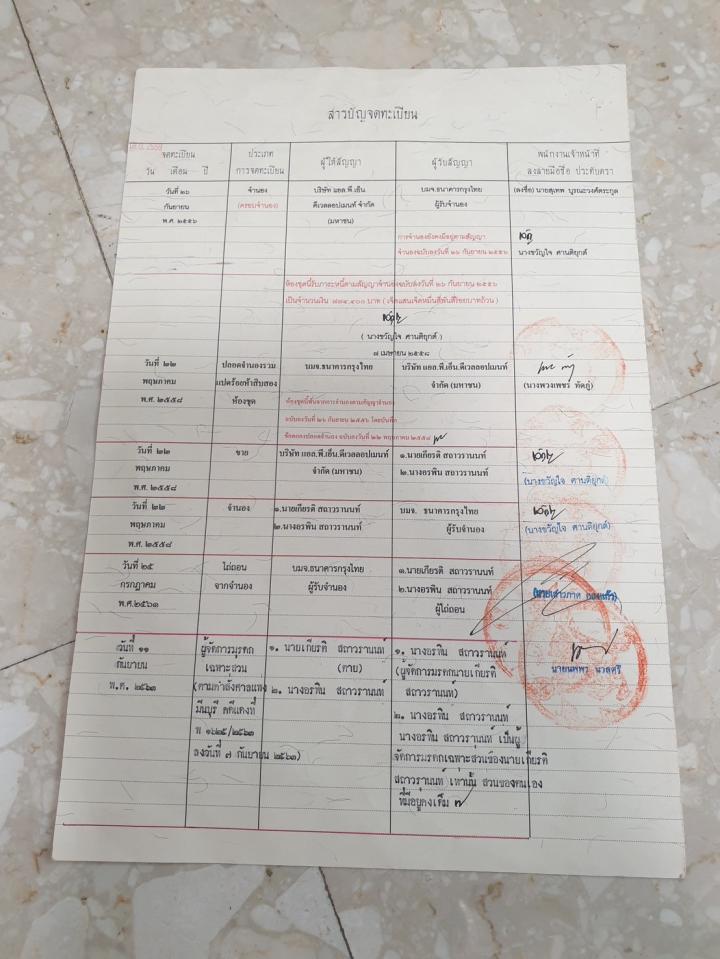 สารบัญจดทะเบียน
จดทะเบียน
วัน เดือน ปี
ประเภท
การจดทะเบียน
ผู้ให้สัญญา
ผู้รับสัญญา
พนักงานเจ้าหน้าที่
ลงลายมือชื่อ ประทับตรา
วันที่ ๒๖
กันยายน
พ.ศ. ๒๕๕๖
จำนอง
(ครอบจำนอง)
บริษัท แอล.พี.เอ็น
ดีเวลลอปเมนท์ จำกัด
(มหาชน)
บมจ.ธนาคารกรุงไทย
ผู้รับจำนอง
(ลงชื่อ) นายสุเทพ บูรณะวงศ์ตระกูล
การจำนองยังคงมีอยู่ตามสัญญา
จำนองฉบับลงวันที่ ๒๖ กันยายน ๒๕๕๖
นางขวัญใจ ศานติยุกต์
ห้องชุดนี้รับภาระหนี้ตามสัญญาจำนองฉบับลงวันที่ ๒๖ กันยายน ๒๕๕๖
เป็นจำนวนเงิน ๗๗๔,๔๐๐ บาท (เจ็ดแสนเจ็ดหมื่นสี่พันสี่ร้อยบาทถ้วน)
(นางขวัญใจ ศานติยุกต์)
๗ เมษายน ๒๕๕๘
วันที่ ๒๒
พฤษภาคม
พ.ศ. ๒๕๕๘
ปลอดจำนองรวม
แปดร้อยห้าสิบสอง
ห้องชุด
บมจ.ธนาคารกรุงไทย
บริษัท แอล.พี.เอ็น.ดีเวลลอปเมนท์
จำกัด (มหาชน)
(นางพวงเพชร ทัดภู่)
ห้องชุดนี้พ้นจากการจำนองตามสัญญาจำนอง
ฉบับลงวันที่ ๒๖ กันยายน ๒๕๕๖ โดยบันทึก
ข้อตกลงปลอดจำนอง ฉบับลงวันที่ ๒๒ พฤษภาคม ๒๕๕๘
วันที่ ๒๒
พฤษภาคม
พ.ศ. ๒๕๕๘
ขาย
บริษัท แอล.พี.เอ็น.ดีเวลลอปเมนท์
จำกัด (มหาชน)
๑.นายเกียรติ สถาวรานนท์
๒.นางอรพิน สถาวรานนท์
(นางขวัญใจ ศานติยุกต์)
วันที่ ๒๒
พฤษภาคม
พ.ศ. ๒๕๕๘
จำนอง
๑.นายเกียรติ สถาวรานนท์
๒.นางอรพิน สถาวรานนท์
บมจ. ธนาคารกรุงไทย
ผู้รับจำนอง
(นางขวัญใจ ศานติยุกต์)
วันที่ ๒๕
กรกฎาคม
พ.ศ.๒๕๖๑
ไถ่ถอน
จากจำนอง
บมจ.ธนาคารกรุงไทย
ผู้รับจำนอง
๑.นายเกียรติ สถาวรานนท์
๒.นางอรพิน สถาวรานนท์
ผู้ไถ่ถอน
วันที่ ๑๑
กันยายน
พ.ศ. ๒๕๖๓
ผู้จัดการมรดก
เฉพาะส่วน
(ตามคำสั่งศาลแพ่ง
มีนบุรี คดีแดงที่
พ ๑๖๒๕/๒๕๖๓
ลงวันที่ ๗ กันยายน ๒๕๖๓)
๑. นายเกียรติ สถาวรานนท์
(ตาย)
๒. นางอรพิน สถาวรานนท์
๑. นางอรพิน สถาวรานนท์
(ผู้จัดการมรดกนายเกียรติ
สถาวรานนท์)
๒. นางอรพิน สถาวรานนท์
นางอรพิน สถาวรานนท์ เป็นผู้
จัดการมรดกเฉพาะส่วนของนายเกียรติ
สถาวรานนท์ เท่านั้น ส่วนของตนเอง
ที่มีอยู่คงเดิม
นายนพพร นวลศรี